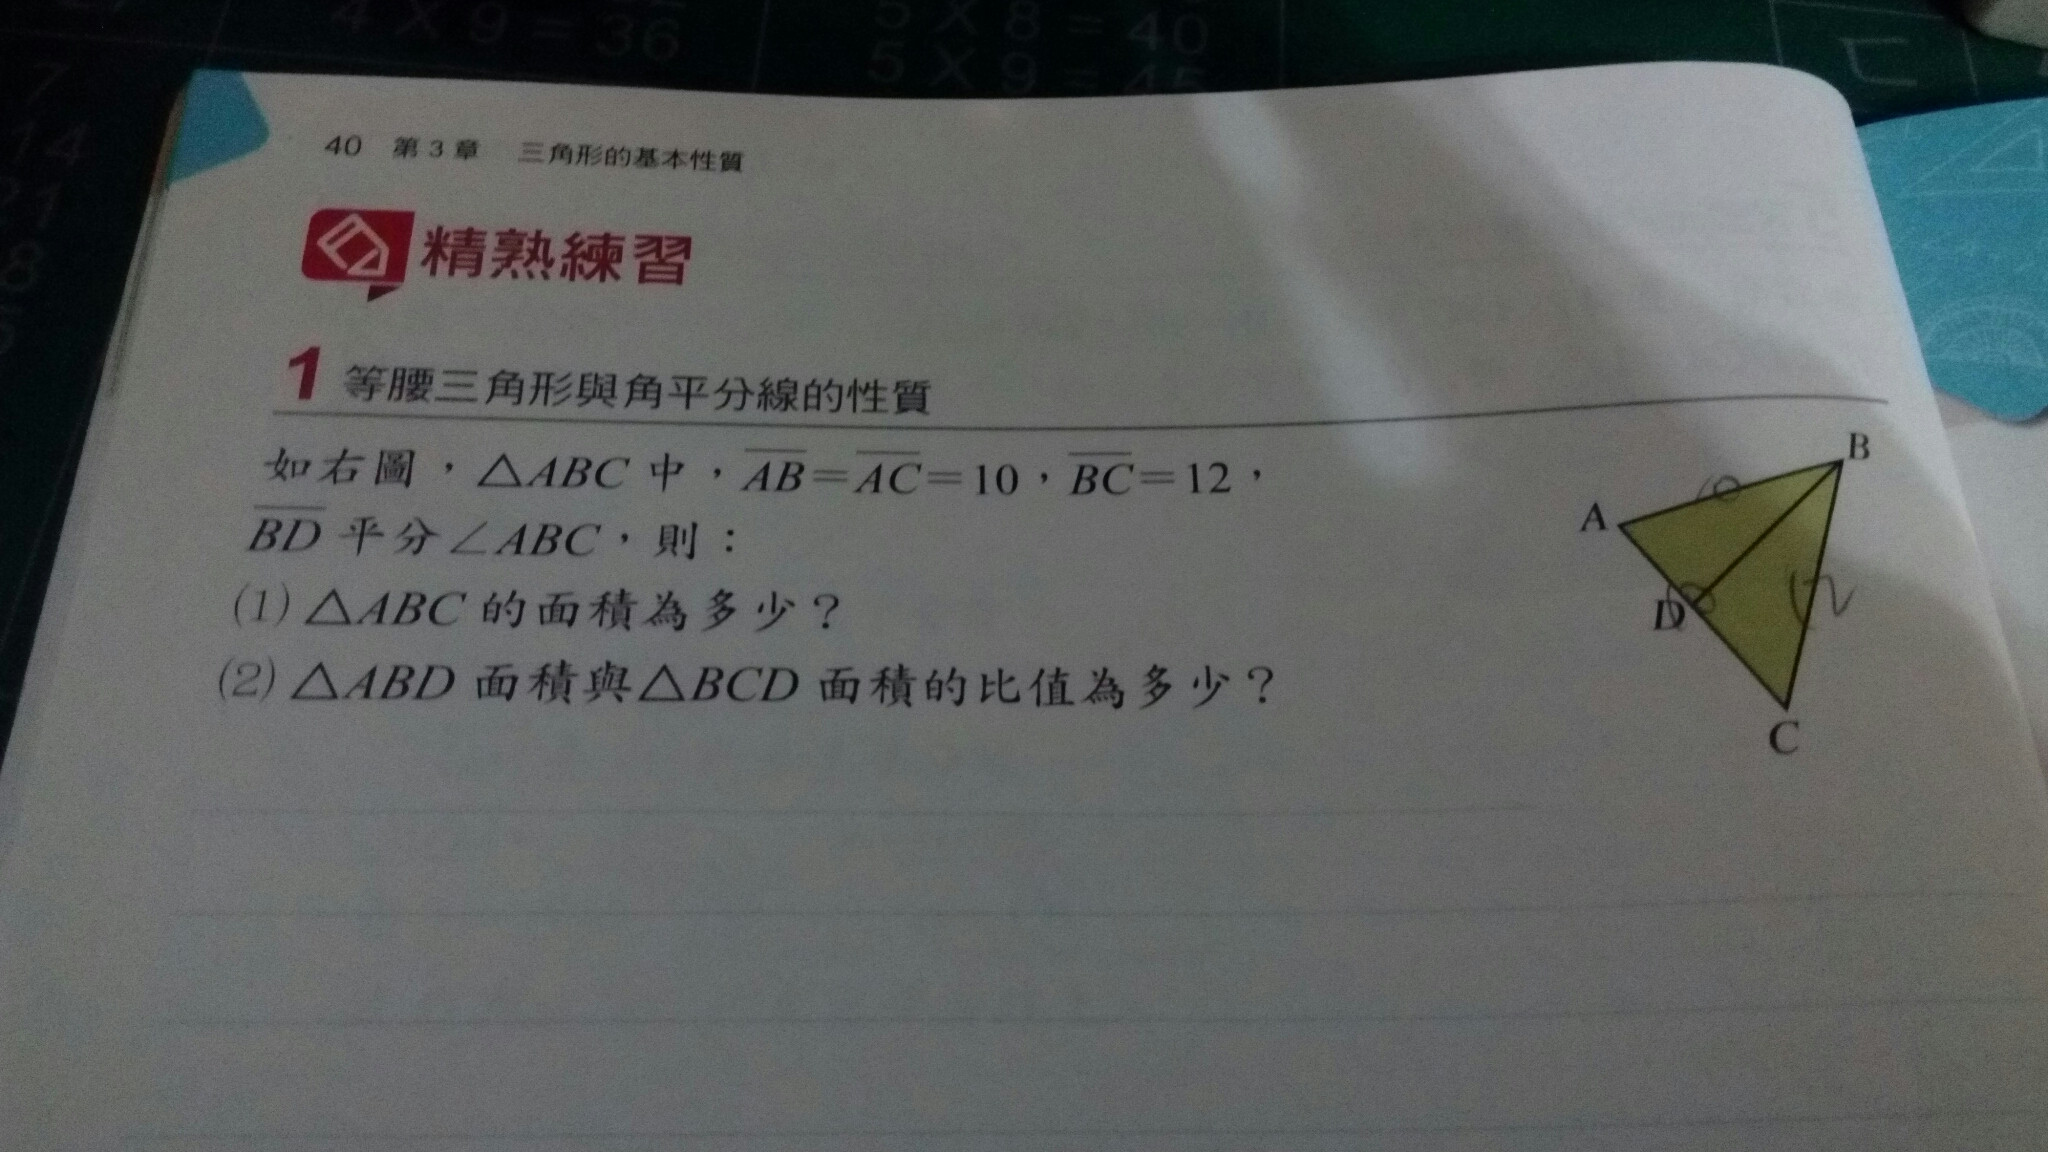 4 X 9 = 36
5 X 8 = 40
5 X 9 = 45
7
14
21
8
40 第3章 三角形的基本性質
精熟練習
1 等腰三角形與角平分線的性質
如右圖，△ABC 中，AB=AC=10，BC=12，
BD 平分∠ABC，則：
(1) △ABC 的面積為多少？
(2) △ABD 面積與△BCD 面積的比值為多少？
B
10
A
D
12
C